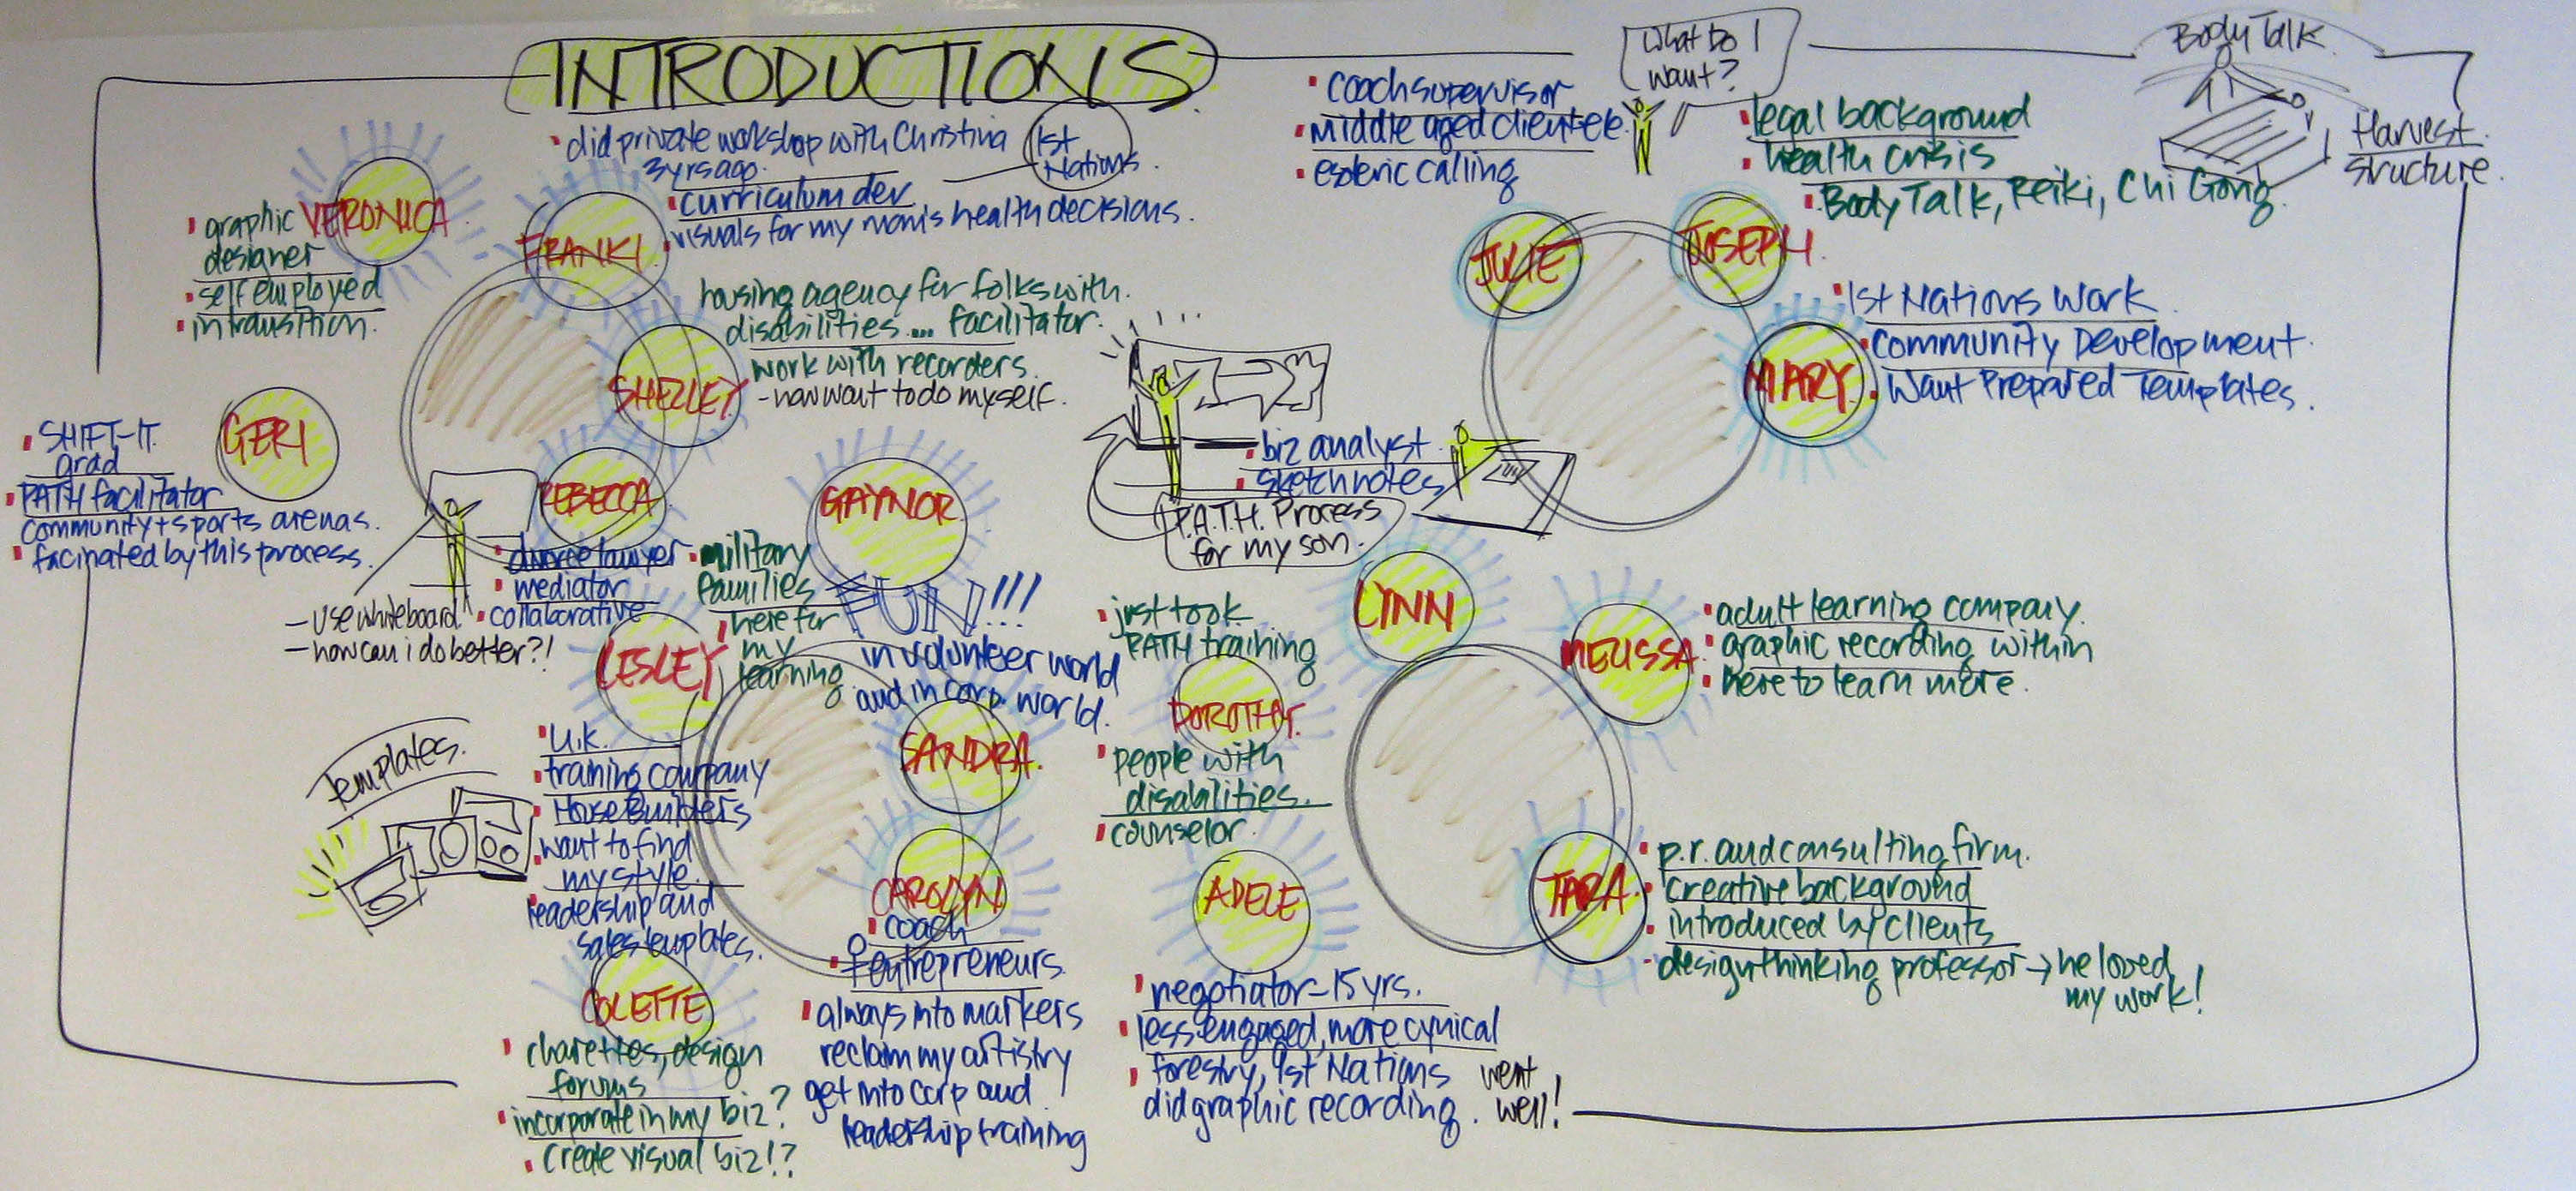 INTRODUCTIONS
What do I
want?
Body Talk
Harvest
structure.
VERONICA
graphic
designer
self employed
in transition.
FRANKI
did private workshop with Christina
3 yrs ago.
1st
Nations.
curriculum dev
visuals for my mom's health decisions.
SHELLEY
housing agency for folks with
disabilities.... facilitator.
work with recorders.
- now want to do myself.
GERI
SHIFT-IT
grad
PATH facilitator
community + sports arenas.
facinated by this process.
REBECCA
divorce lawyer
mediator
collaborative
- use whiteboard
- how can i do better?!
JULIE
coach supervisor
middle aged clientele
esoteric calling
JOSEPH
legal background
health crisis
Body Talk, Reiki, Chi Gong.
MARY
1st Nations Work
Community Development.
Want Prepared Templates.
biz analyst
sketchnotes
P.A.T.H. Process
for my son.
LYNN
GAYNOR
FUN!!!
in volunteer world
and in corp. world.
LESLEY
military
families
here for
my
learning
SANDRA
Templates.
U.K.
training company
House Builders
want to find
my style.
leadership and
sales templates.
CAROLYN
coach
♀ entrepreneurs
always into markers
reclaim my artistry
get into corp and
leadership training
COLETTE
charettes, design
forums
incorporate in my biz?
create visual biz!?
DOROTHY
just took
PATH training
people with
disabilities.
counselor.
ADELE
negotiator - 15 yrs.
less engaged, more cynical
forestry, 1st Nations
did graphic recording.
went
well!
MELISSA
adult learning company.
graphic recording within
here to learn more.
TARA
p.r. and consulting firm.
creative background
introduced by clients
design thinking professor → he loved
my work!